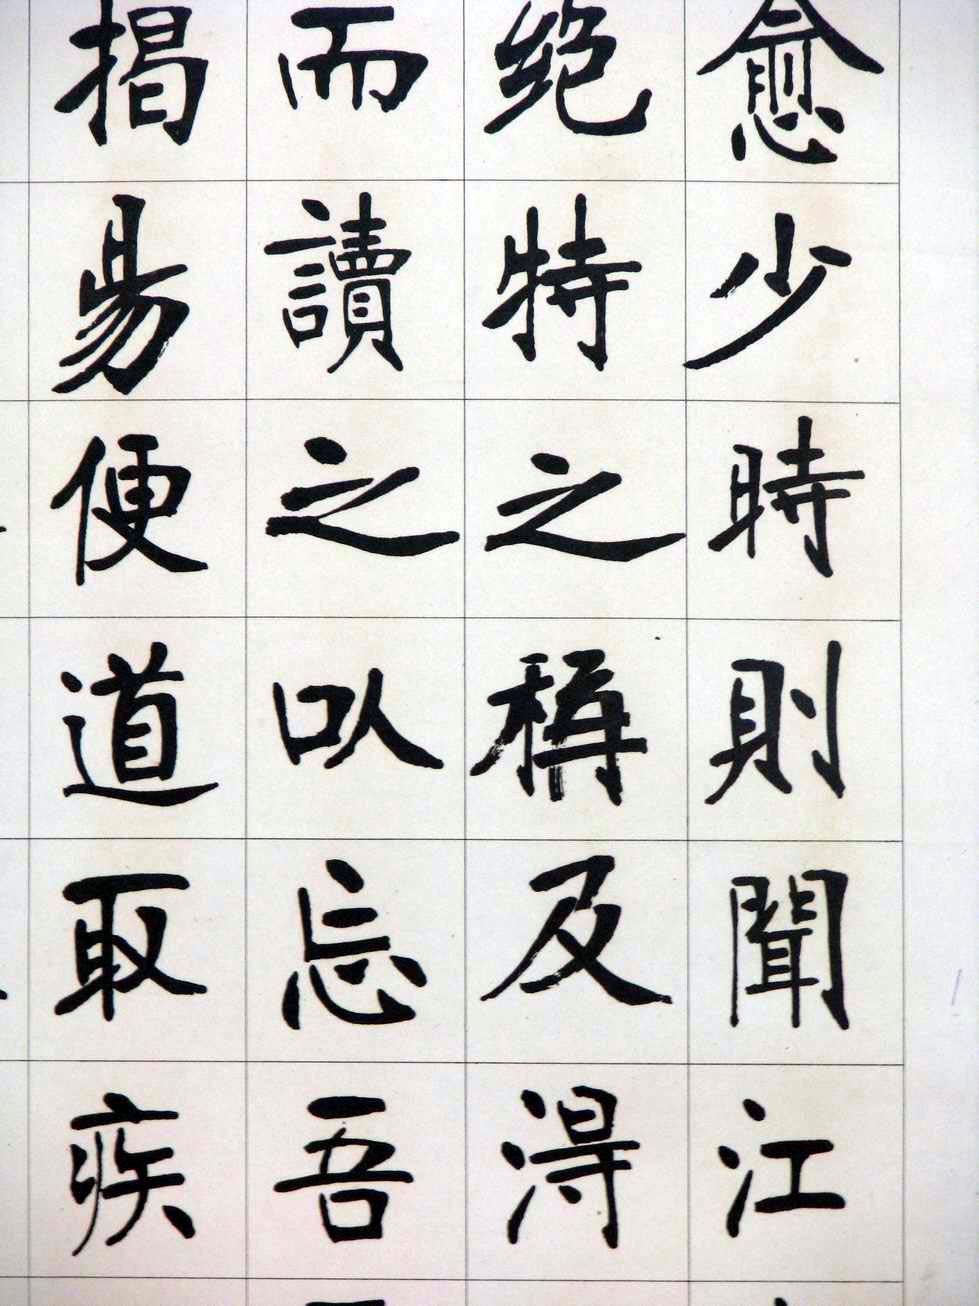 愈少時則聞江
絕特之稱及得
而讀之以忘吾
揭易便道取疾